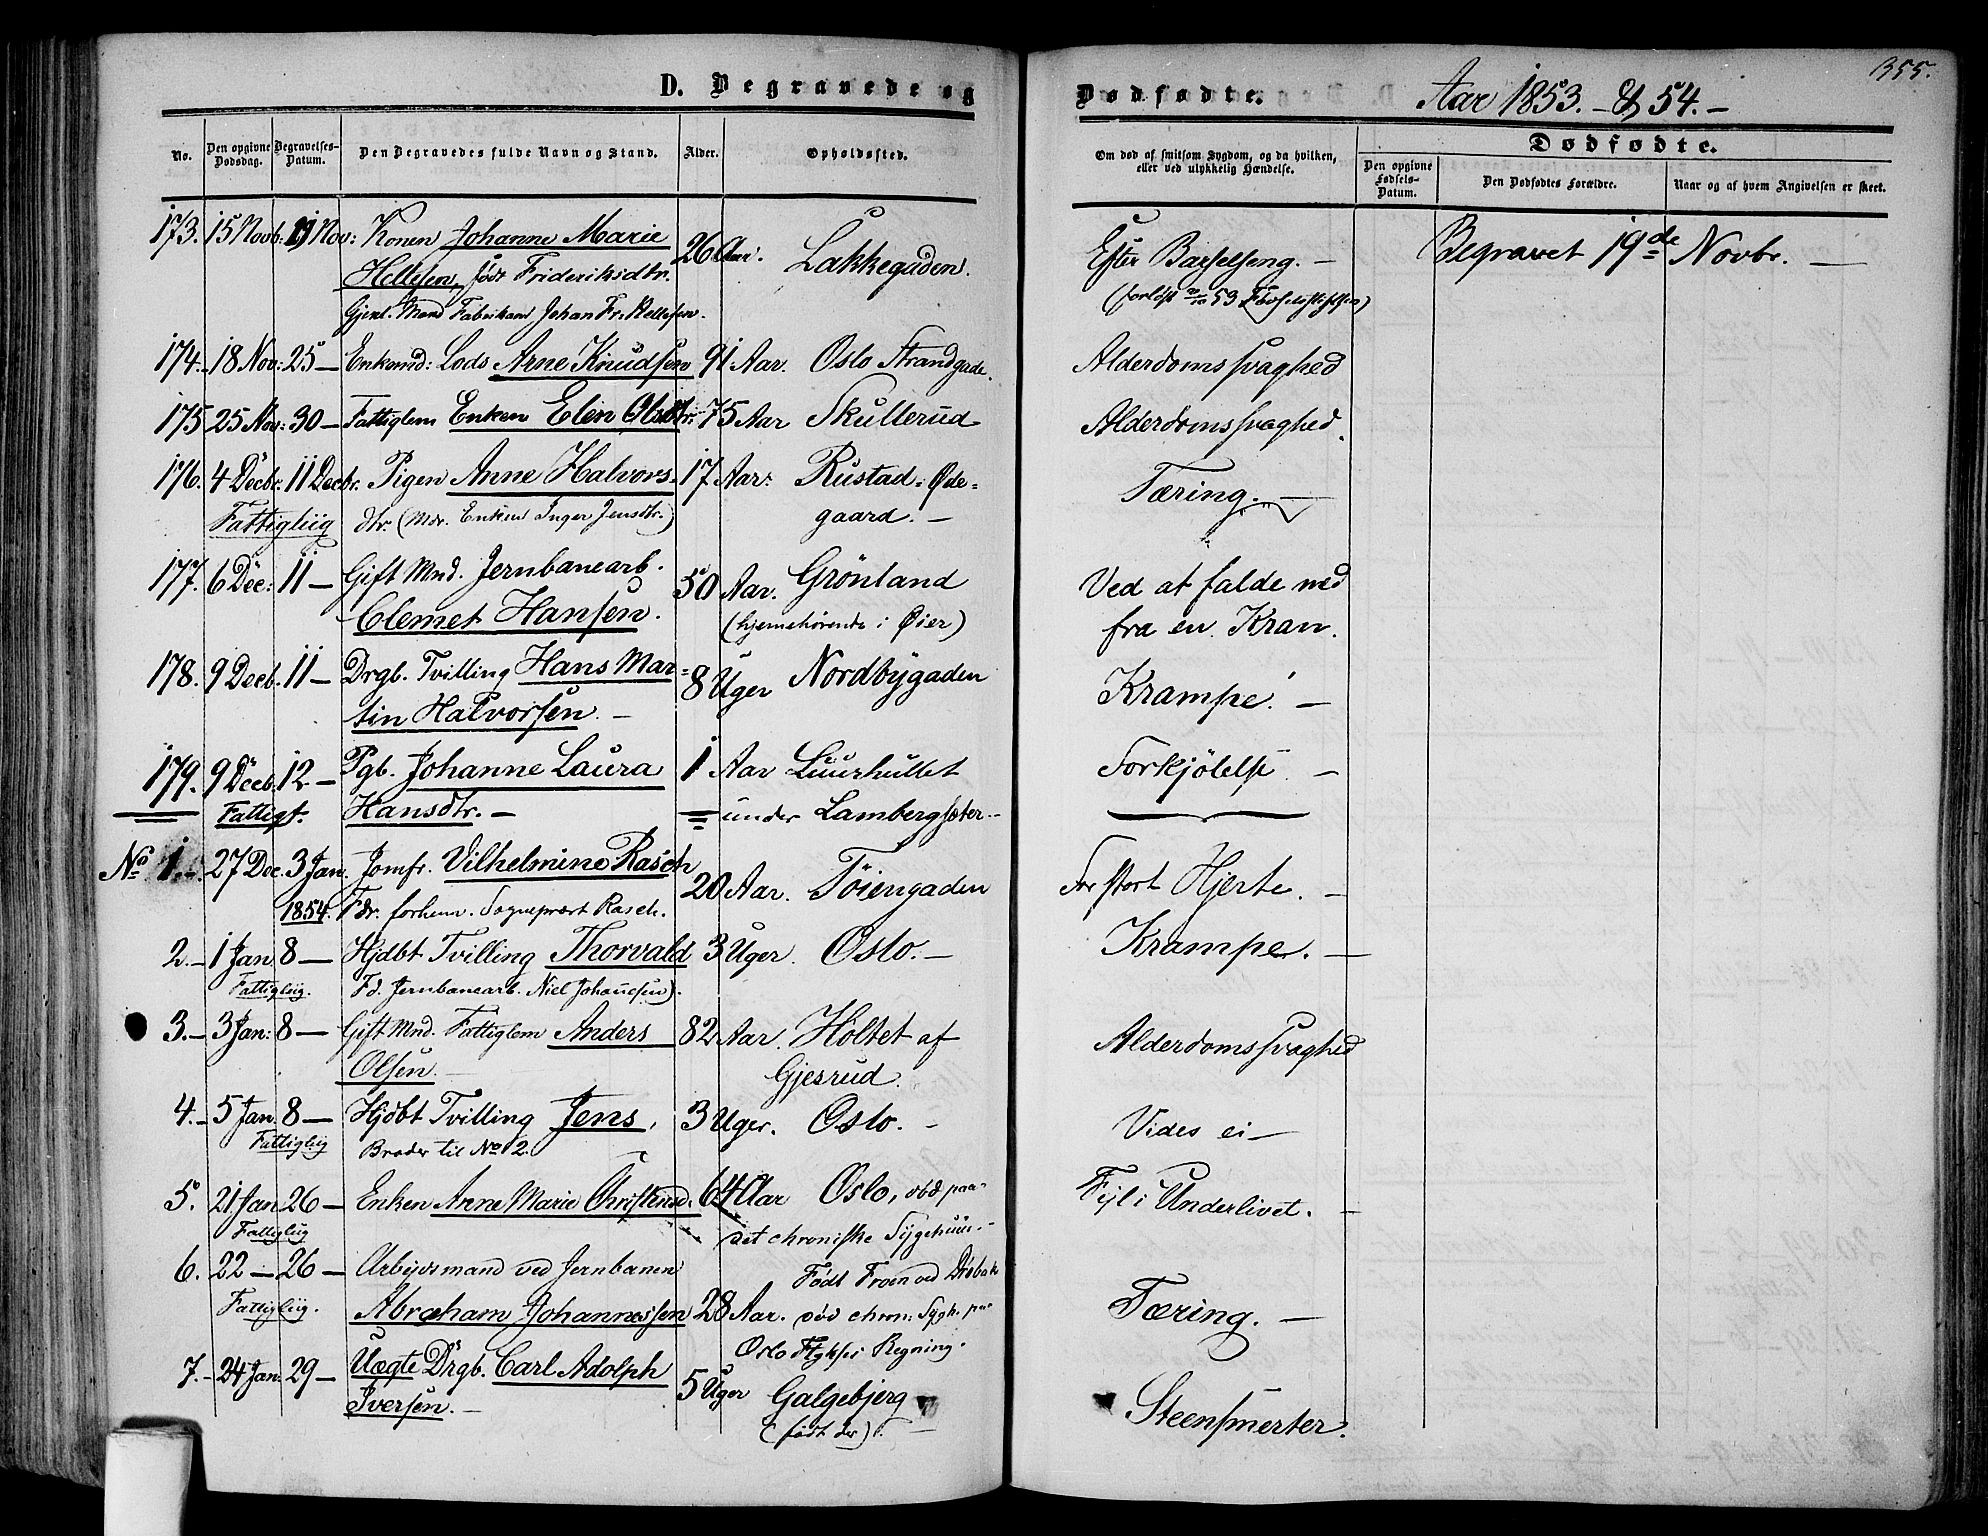 355.
D. Begravede og Dødfødte. Aar 1853. & 54. -
No. Den opgivne Dødsdag. Begravelses-Datum. Den Begravedes fulde Navn og Stand. Alder. Opholdssted. Om død af smitsom Sygdom, og da hvilken, eller ved ulykkelig Hændelse. Dødfødte. Den opgivne Fødsels-Datum. Den Dødfødtes Forældre. Naar og af hvem Angivelsen er skeet.
173. 15 Novb: 19 Nov: Konen Johanne Marie 26 Aar. Lakkegaden. Efter Barselseng. - Begravet 19de Novbr. -
Hellesen, født Frideriksdtr. (forløst 53 Fødselsstiftelsen)
Gjenl. Mand Fabrikant Johan Fr. Hellesen.
174. 18 Nov: 25 - Enkemd: Lods Arne Knudsen 91 Aar. Oslo Strandgade. Alderdomssvaghed
175 25 Nov: 30 - Fattiglem Enken Elen Olsdtr. 75 Aar Skullerud Alderdomssvaghed.
176. 4 Decbr. 11 Decbr. Pigen Anne Halvors- 17 Aar: Rustad = Øde- Tæring. -
Fattigliig dtr. (Mdr. Enken Inger Jensdtr.) gaard. -
177. 6 Dec: 11 - Gift Mnd. Jernbanearb. 50 Aar. Grönland Ved at falde ned
Clemet Hansen. (hjemehörende i Øier) fra en Kran.
178. 9 Decb. 11 - Drgb. Tvilling Hans Mar= 8 Uger Nordbygaden Krampe. -
tin Halvorsen. -
179. 9 Decb. 12 - Pgb. Johanne Laura 1 Aar Luurhullet Forkjølelse -
Fattigt. Hansdtr. - under Lambergsæter. -
No 1. 27 Dec. 3 Jan. Jomfr. Vilhelmine Rasch 20 Aar. Töiengaden For stort Hjerte. -
1854. Fdr. forhen. Sognepræst Rasch.
2. - 1 Jan. 8 - Hjdbt Tvilling Thorvald 3 Uger. Oslo. - Krampe. -
Fattigliig. Fd. Jernbanearb. Niel Johannesen).
3. - 3 Jan: 8 - Gift Mnd. Fattiglem Anders 82 Aar. Holtet af Alderdomssvaghed
Olsen. - Gjesrud.
4. - 5 Jan 8 - Hjdbt Tvilling Jens, 3 Uger. Oslo. - Vides ei -
Fattigliig Broder til No 2.
5. 21 Jan 26 - Enken Anne Marie Christensd. 64 Aar Oslo, död paa Feil i Underlivet. -
Fattigliig det chroniske Sygehuus. -
6. 22 - 26 - Arbeidsmand ved Jernbanen Födt Froen ved Dröbak
Fattigliig. Abraham Johannessen 28 Aar. död chron. Sygh. paa Tæring. -
Oslo Regning.
7. - 24 Jan: 29 - Uægte Drgb. Carl Adolph 5 Uger Galgebjerg Steensmerter.
Iversen. - (født der).